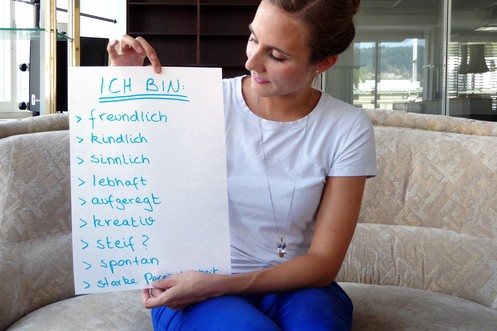 ICH BIN:
> freundlich
> kindlich
> sinnlich
> lebhaft
> aufgeregt
> kreativ
> steif ?
> spontan
> starke